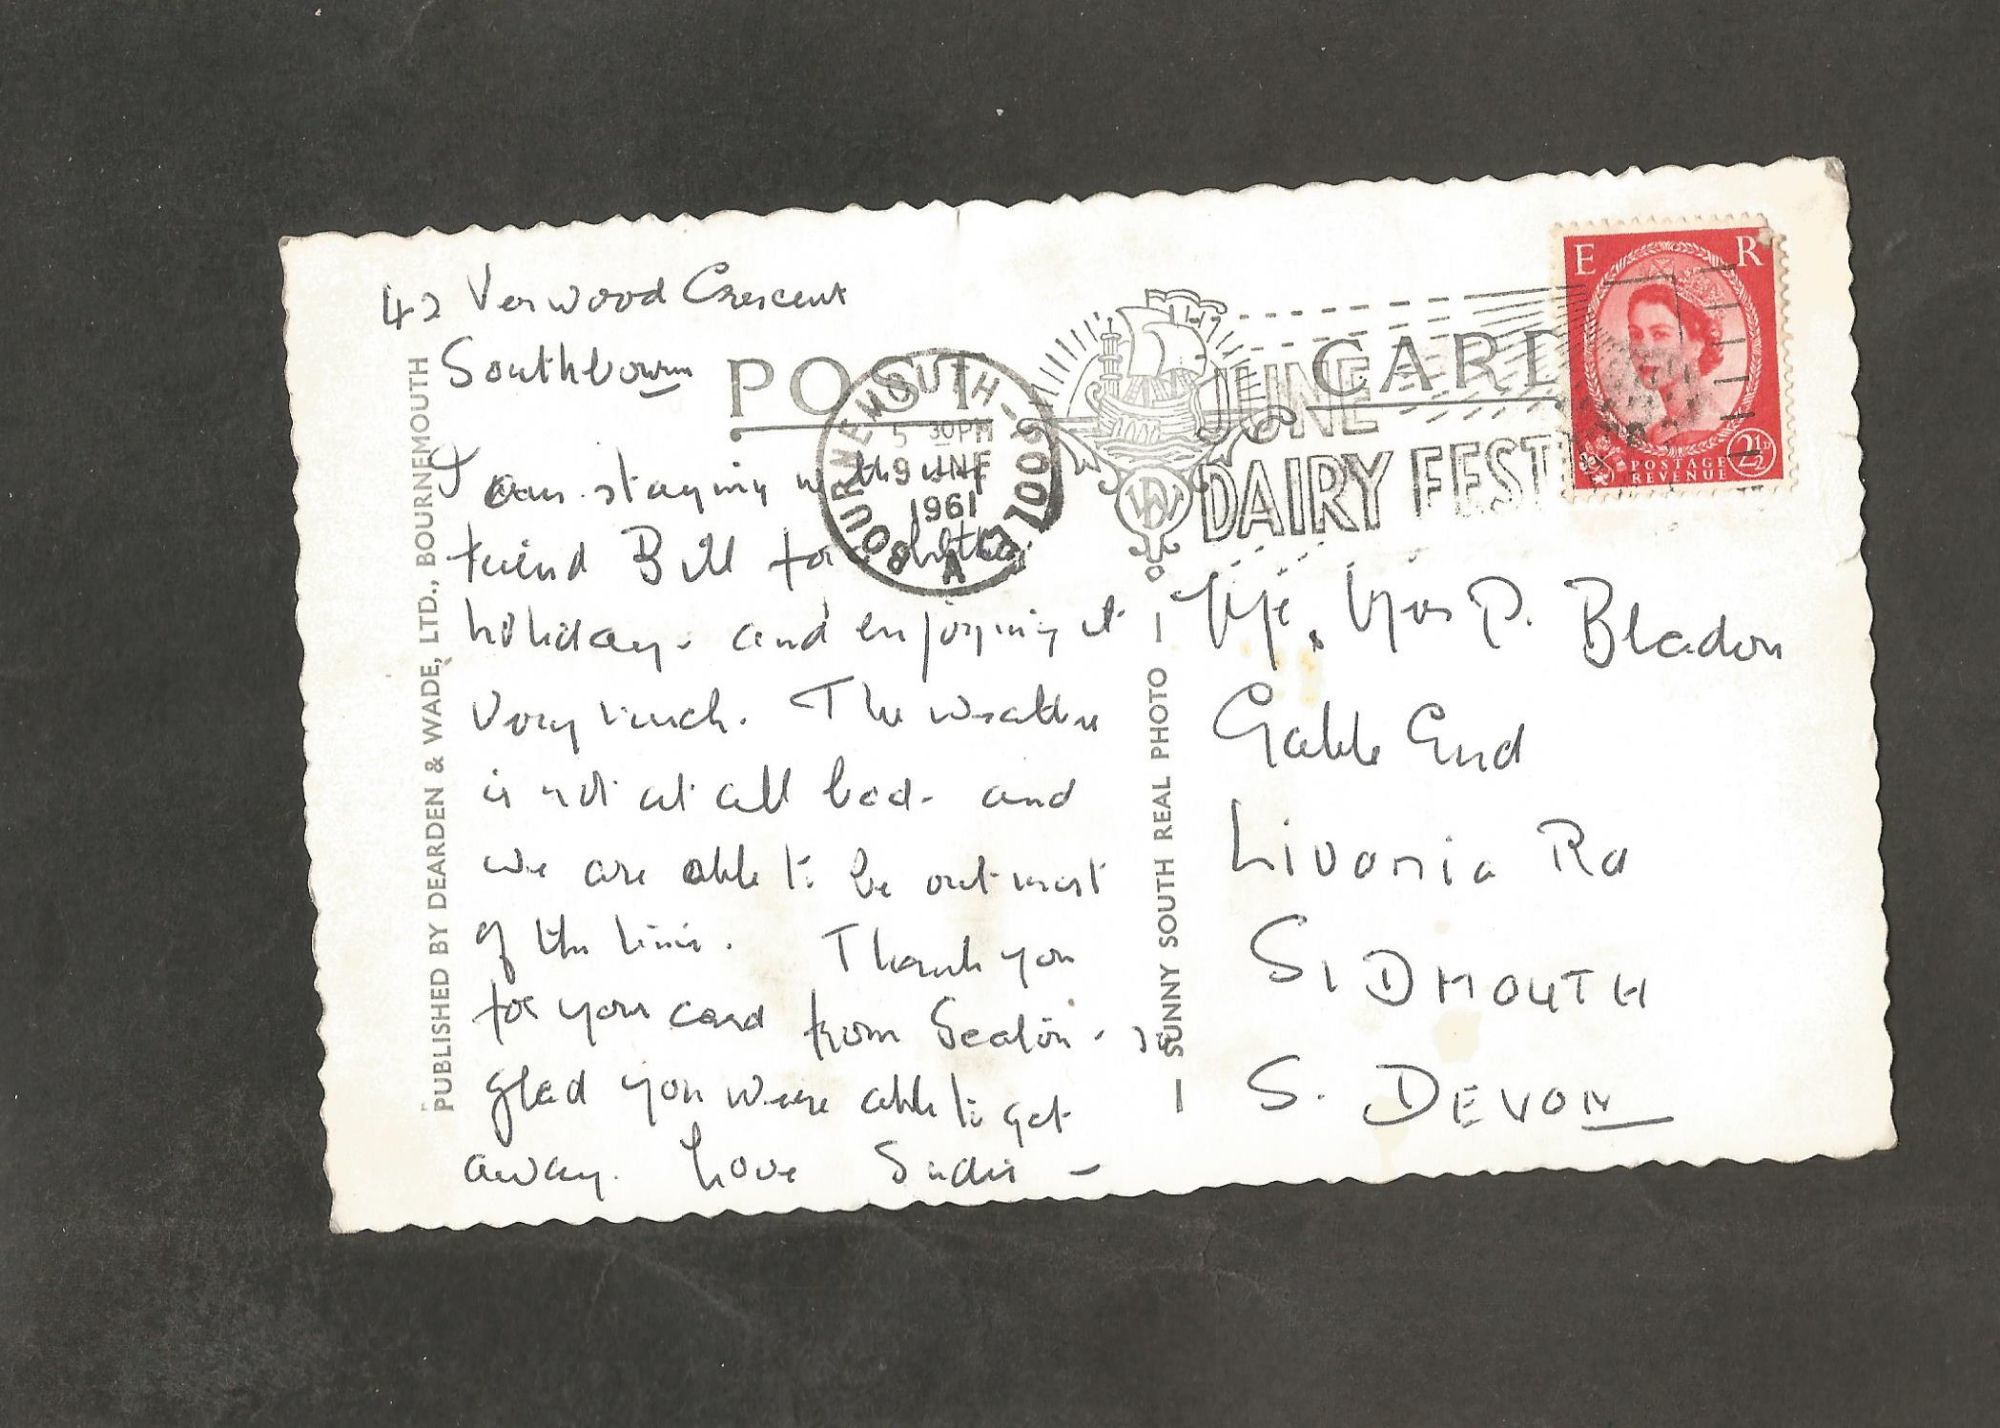 42 Verwood Crescent
Southbourne
POST CARD
BOURNEMOUTH-POOLE
5 30PM
9 JNE
1961
A
JUNE
DAIRY FESTI
E R
POSTAGE
REVENUE
2½D
I am staying with
friend Bill for
holiday - and enjoying it
very much. The weather
is not at all bad - and
we are able to be out most
of the time. Thank you
for your card from Seaton - so
glad you were able to get
away. Love
Mr & Mrs P. Bladon
Gable End
Livonia Rd
SIDMOUTH
S. DEVON
PUBLISHED BY DEARDEN & WADE, LTD., BOURNEMOUTH
SUNNY SOUTH REAL PHOTO